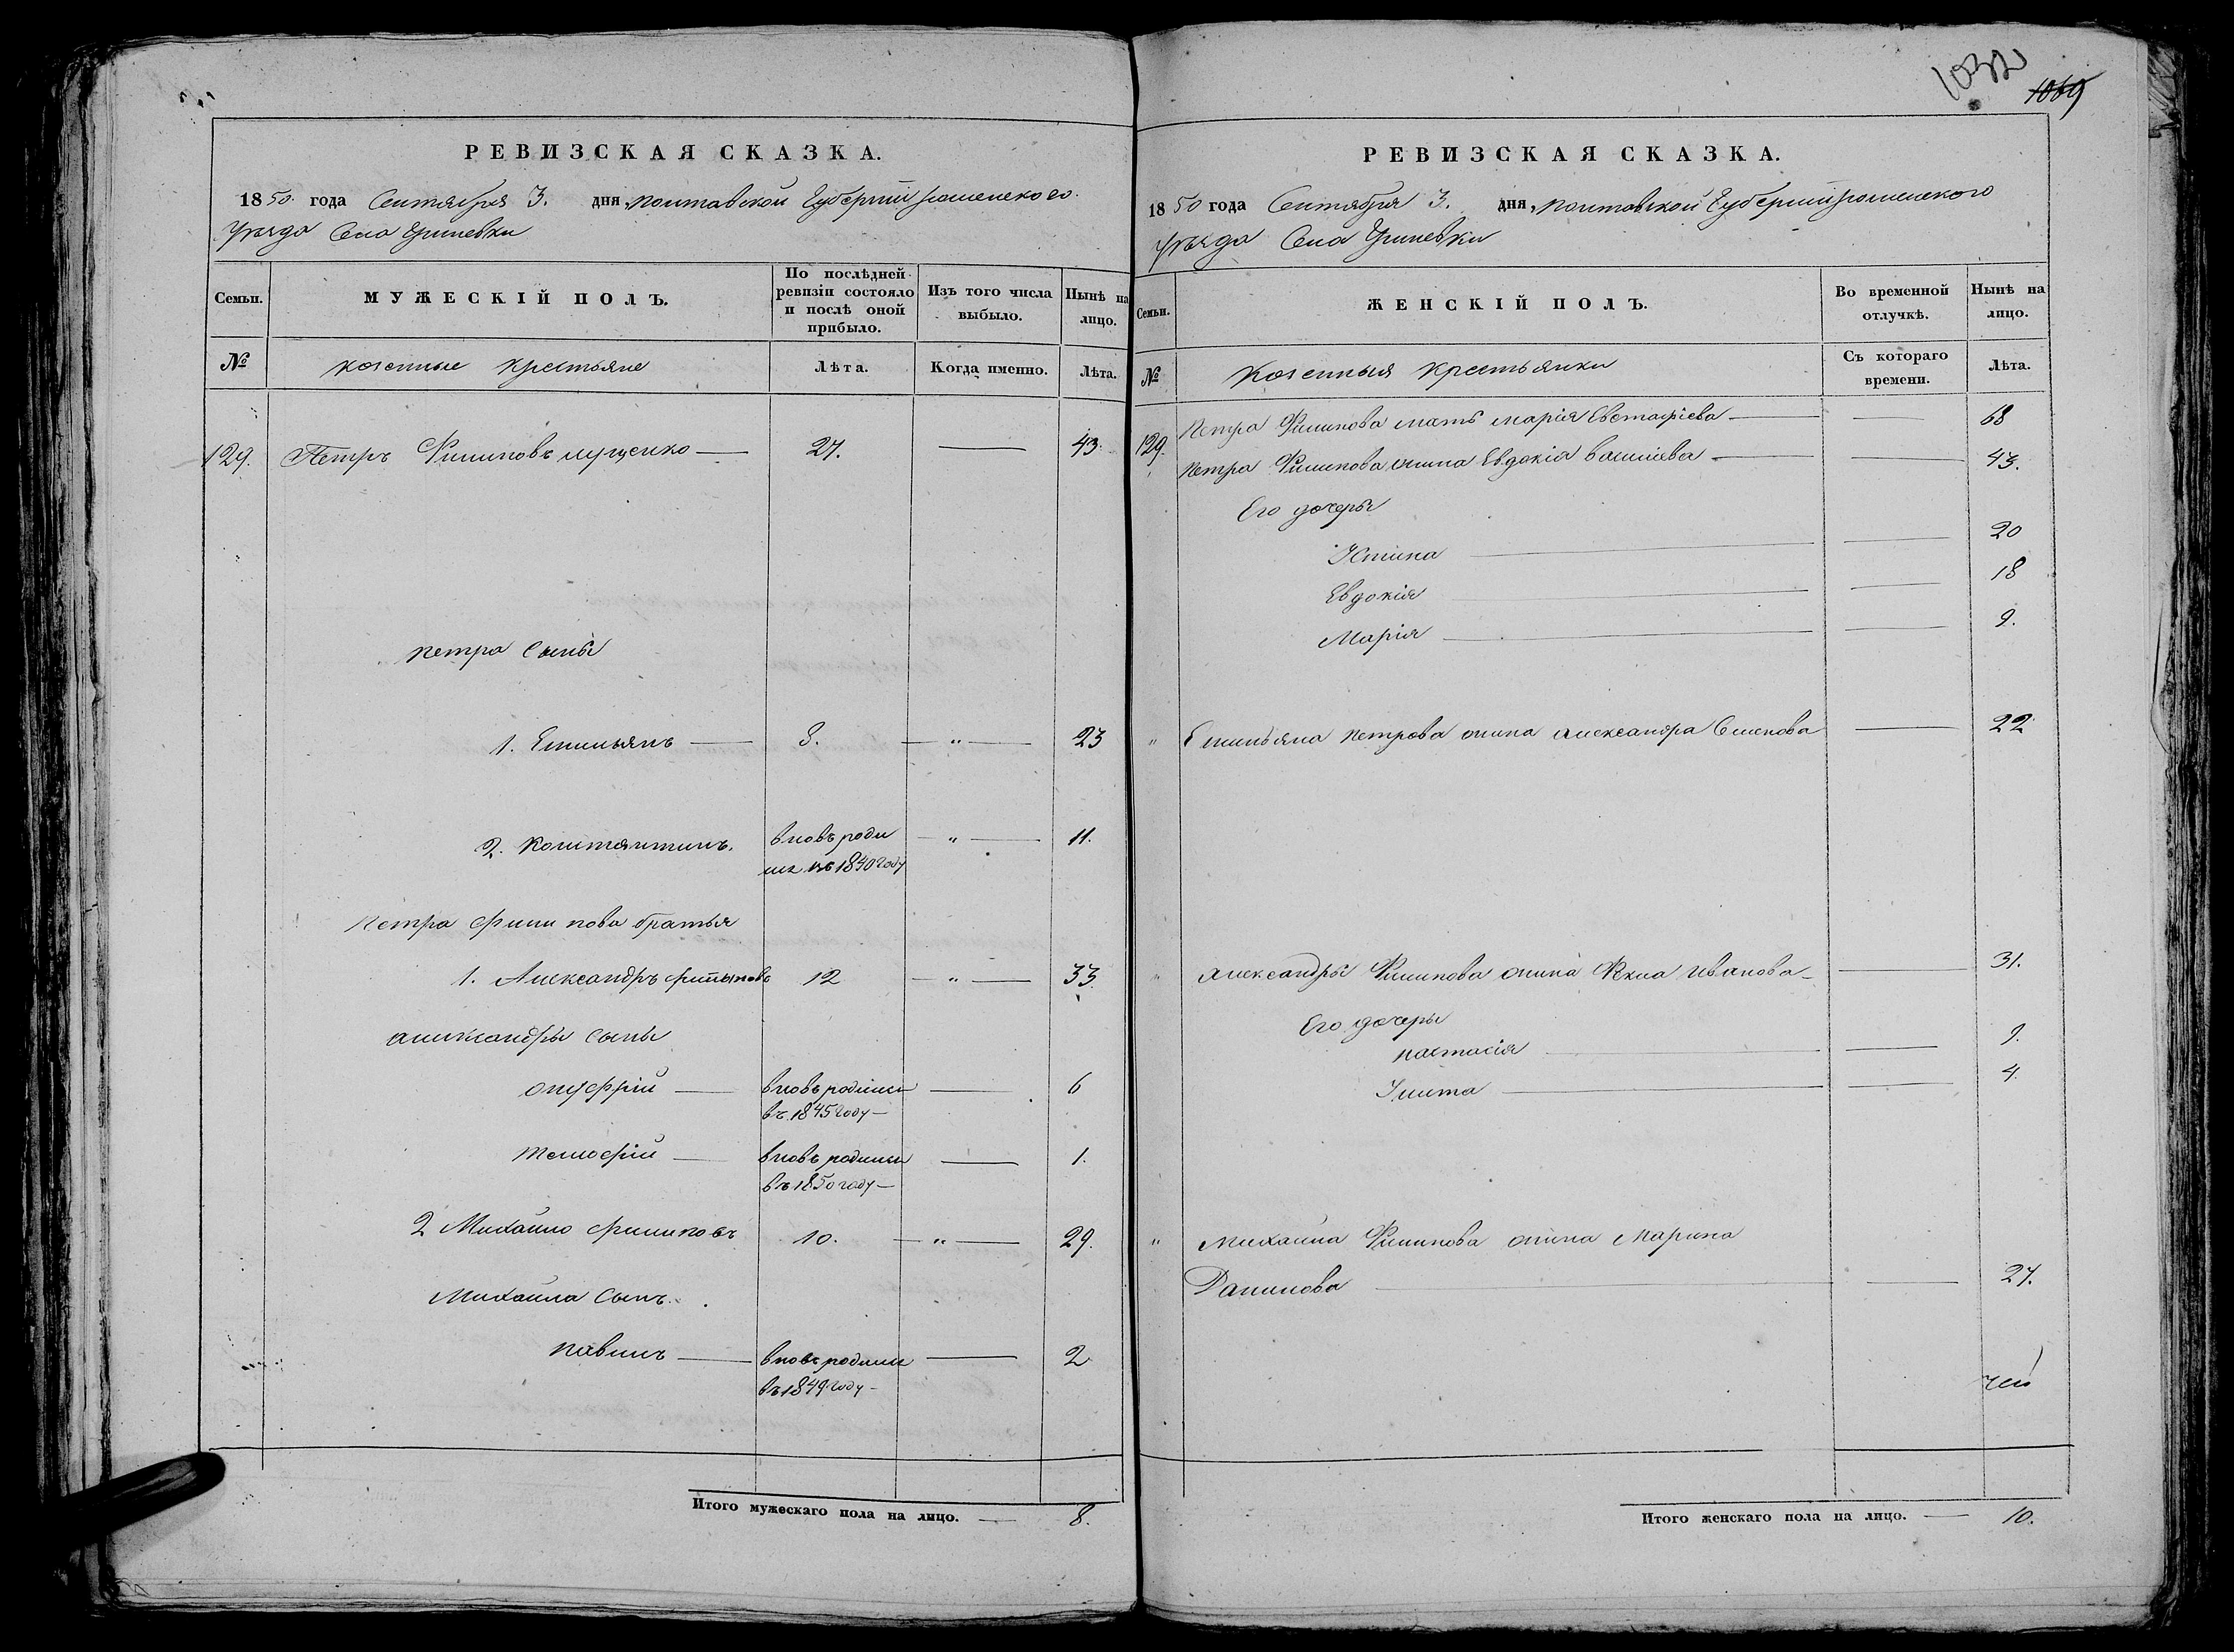 1032
1069
РЕВИЗСКАЯ СКАЗКА.
1850 года Сентября 3. дня, Полтавской Губернии Роменского
Уезда Села Гриневки
Семьи.
МУЖЕСКІЙ ПОЛЪ.
По послѣдней ревизіи состояло и послѣ оной прибыло.
Изъ того числа выбыло.
Нынѣ на лицо.
№
Козенные Крестьяне
Лѣта.
Когда именно.
Лѣта.
129. Петръ Филиповъ — 27. — 43.
Петра Сыны
1. Емильянъ — 8. — " — 23
2. Константинъ. вновь роди — " — 11.
въ 1840 году
Петра Филипова братья
1. Александръ Филиповъ 12 — " — 33.
Александры Сыны
Онуфрій — вновь родился — 6
въ 1845 году —
Тимофій — вновь родился — 1.
въ 1850 году —
2 Михайло Филиповъ 10. — " — 29.
Михайла Сынъ.
Павилъ — вновь родился — 2
въ 1849 году —
Итого мужескаго пола на лицо. — 8.
РЕВИЗСКАЯ СКАЗКА.
1850 года Сентября 3. дня, Полтавской Губернии Роменского
Уезда Села Гриневки
Семьи.
ЖЕНСКІЙ ПОЛЪ.
Во временной отлучкѣ.
Нынѣ на лицо.
№
Козенныя Крестьянки
Съ котораго времени.
Лѣта.
Петра Филипова мать Марія Евстафіева — — 68
129. Петра Филипова жина Евдокія Василіева — — 43.
Его дочеры
Устина — — 20
Евдокія — — 18
Марія — — 9.
" Емильяна Петрова жина Александра Семенова — 22
" Александры Филипова жина Фекла Иванова — — 31.
Его дочеры
Настасія — — 9.
Улита — — 4
" Михайла Филипова жина Марина
Данилова — — 27.
Итого женскаго пола на лицо. — 10.